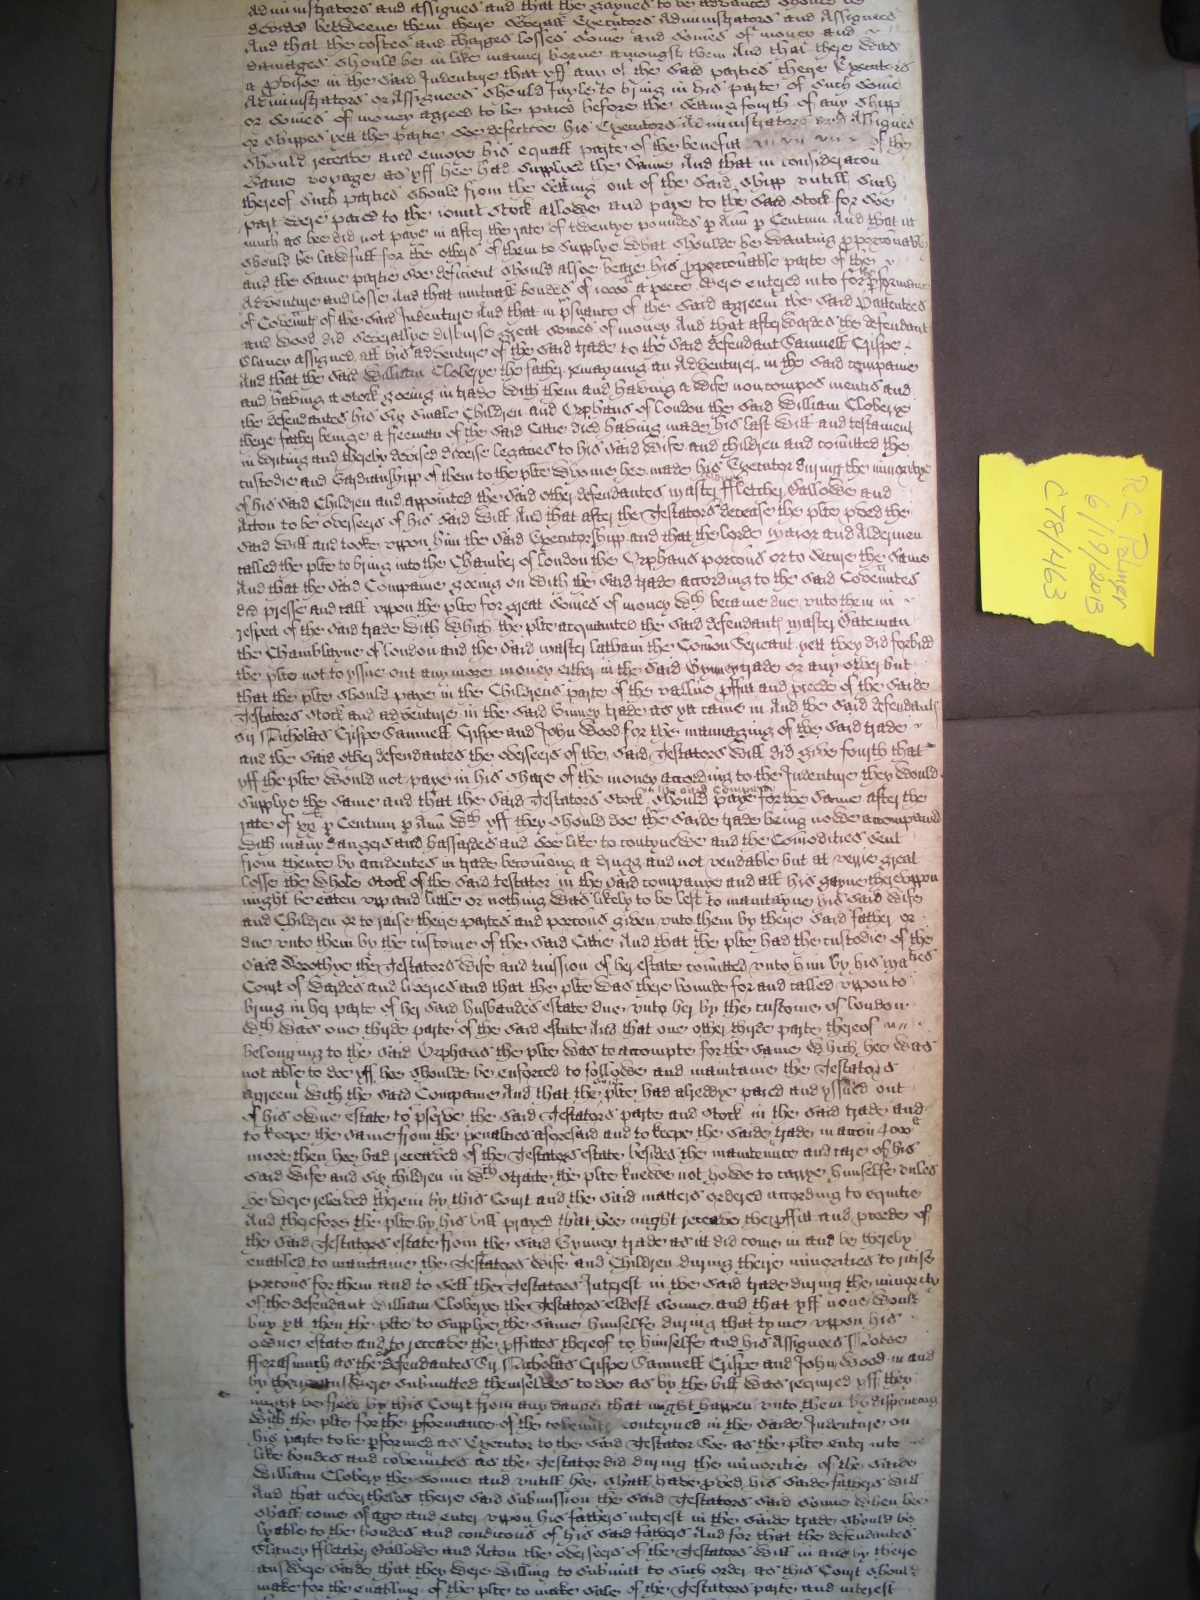 Administrators and assignes and that the gaynes to be advanced should be
devided betweene them theire severall Executors Administrators and Assignes
And that the costes and charges losses some and somes of money and
damages should be in like manner borne amongst them And that there was
a Provisoe in the said Indenture that yff any of the said parties theire Executors
Administrators or Assignees should fayle to bring in his parte of such some
or somes of money agreed to be paied before the setting fourth of any shipp
or shippes yett the partie soe defective his Executors Administrators and Assignes
should receave and enioye his equall parte of the benefitt of the
same voyage as yff hee had supplied the same And that in consideracon
thereof such parties should from the setting out of the said shipp untill such
part were paied to the ioint stock allowe and paye to the said stock for soe
much as hee did not paye in after the rate of twentye poundes p Ann p Centum And that it
should be lawfull for the others of them to supplye what shoulde be wanting pporconable
and the same partie soe deficient should alsoe beare his pporconable parte of the
Adventure and losse And that mutuall bondes of 1000li a peece were entred into for the pformance
of Covennts of the said Indenture And that in psuance of the said agreemt the said Pattentees
and Wood did severallye disburse great somes of money And that afterwardes the defendant
Slaney assigned all his adventure of the said trade to the said defendant Samuell Crispe
And that the said William Cloberye the father remayning an Adventurer in the said companie
and having a stock goeing in trade with them and having a wife non compos mentis and
the defendantes his six smale Children and Orphans of London the said William Cloberye
theire father beinge a freeman of the said Cittie died having made his last will and testament
in writing and thereby devised diverse legacies to his said wife and children and comitted the
custodie and Gardianshipp of them to the plte whome hee made his Executor during the minoritye
of his said Children and appointed the said other defendantes master ffletcher Gallowe and
Acton to be overseers of his said will And that after the Testators decease the plte pved the
said will and tooke uppon him the said Executorshipp and that the lorde maior and Aldermen
called the plte to bring into the Chamber of london the Orphans porcons or to secure the same
And that the said Companie goeing on with the said trade according to the said Covennntes
did presse and call uppon the plte for great somes of money wch became due unto them in
respect of the said trade with which the plte acquainted the said defendant master Bateman
the Chamblayne of london and the said master latham the Comon Serieant yett they did forbidd
the plte not to yssue out any more money either in the said Gynney trade or any other but
that the plte should paye in the Childrens parte of the vallue pffitt and pceede of the saide
Testators stock and adventure in the said Ginney trade as itt came in And the said defendants
Sir Nicholas Crispe Samuell Crispe and John Wood for the mannaging of the said trade
and the said other defendantes the overseers of the said Testators will did give fourth that
yff the plte would not paye in his share of the money according to the Indenture they would
in the said Company
supplye the same and that the said Testators stock should paye for the same after the
rate of xx p Centum p Ann wch yff they should doe the saide trade being nowe accompanied
with many dangers and hassardes and soe like to contynewe and the Comodities sent
from thence by accidentes in trade becoming a drugg and not vendable but at verie great
losse the whole stock of the said testator in the said companye and all his gayne thereuppon
might be eaten upp and litle or nothing was likely to be left to maintayne his said wife
and Children or to raise theire partes and porcons given unto them by theire said father or
due unto them by the custome of the said Cittie And that the plte had the custodie of the
said Dorothye the Testators wife and mission of her estate comitted unto him by his maties
Court of Wardes and liveries and that the plte was there bounde for and called uppon to
bring in her parte of her said husbandes estate due unto her by the custome of london
wch was one thirde parte of the said estate And that one other thirde parte thereof
belonging to the said Orphans the plte was to accompte for the same which hee was
not able to doe yff hee shoulde be enforced to followe and maintaine the Testators
agreemt with the said Companie And that the plte had alreddye paied and yssued out
of his owne estate to pserve the said Testators parte and stock in the said trade and
to keepe the same from the penalties aforesaid and to keepe the saide trade in accon 400li
more then hee had receaved of the Testators estate besides the maintenance and care of his
said wife and six children in wch straite the plte knewe not howe to carrye himselfe unles
he were releived therein by this Court and the said matters ordered according to equitie
And therefore the plte by his bill prayed that hee might receave the pffitt and pceede of
the said Testators estate from the said Gynney trade as itt did come in and be thereby
enabled to maintaine the Testators wife and Children during theire minorities to raise
porcons for them and to sell the Testators Interest in the said trade during the minority
of the defendant William Cloberye the Testators eldest sonne and that yff none would
buy itt then the plte to supplye the same himselfe during that tyme uppon his
owne estate and to receave the pffittes thereof to himselfe and his Assignes Nowe
fforasmuch as the defendantes Sir Nicholas Crispe Samuell Crispe and John Wood in and
by their answere submitted themselves to doe as by the bill was required yff they
might be freed by this Court from any danger that might happen unto them by dispencing
with the plte for the pformance of the covennts conteyned in the saide Indenture on
his parte to be pformed as Executor to the said Testator soe as the plte enter into
like bondes and covenntes as the Testator did during the minoritie of the saide
William Clobery the sonne and untill hee shall have pved his saide fathers will
And that neverthelcs theire said submission the said Testators said sonne when hee
shall come of age and enter uppon his fathers interest in the saide trade should be
lyable to the bondes and condicons of his said fathers And for that the defendantes
Slaney ffletcher Gallowe and Acton the overseers of the Testators will in and by theire
answere saide that they were willing to submitt to such order as this Court should
make for the enabling of the plte to make sale of the Testators parte and interest
R C Palmer
6/19/2013
C78/463